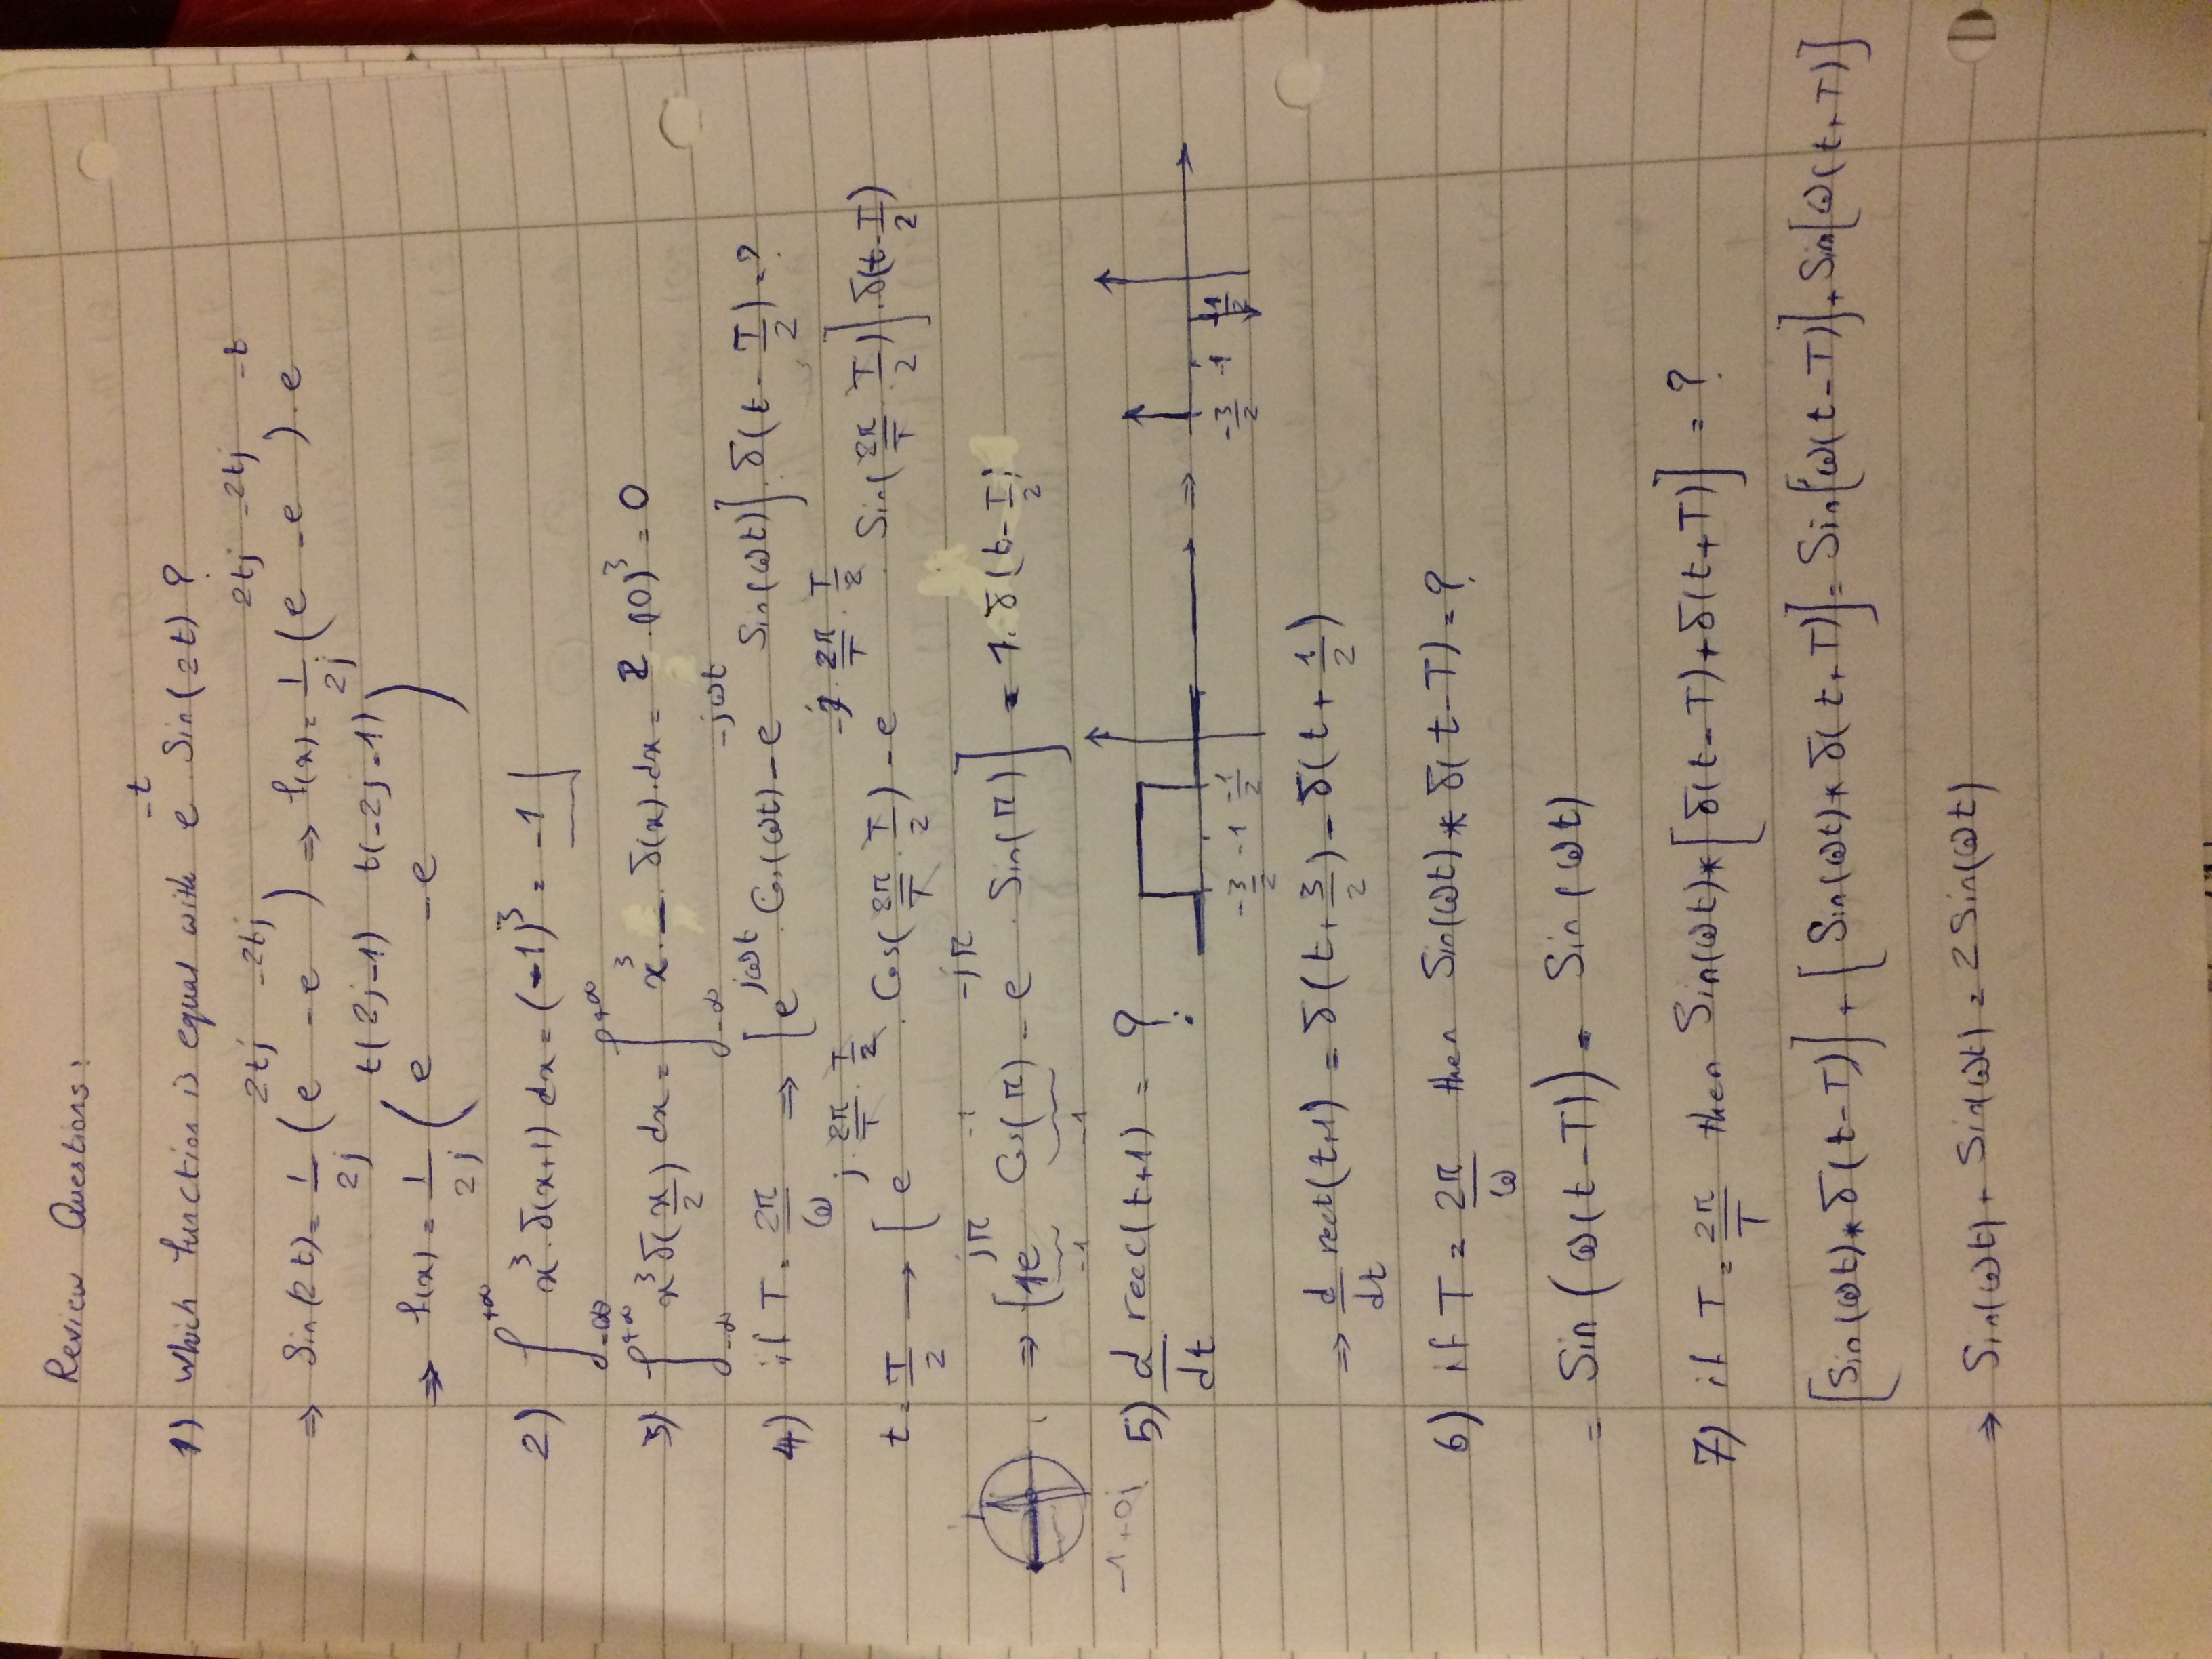 Review Questions:
1) Which function is equal with e^-t Sin(2t) ?
⇒ Sin(2t) = 1/2j (e^2tj - e^-2tj) ⇒ f(x) = 1/2j (e^2tj - e^-2tj) . e^-t
⇒ f(x) = 1/2j (e^t(2j-1) - e^t(-2j-1))
2) ∫_-∞^+∞ x^3 . δ(x+1) dx = (-1)^3 = -1
3) ∫_-∞^+∞ x^3 δ(x/2) dx = ∫_-∞^+∞ x^3 . _ . δ(x) . dx = 2 . (0)^3 = 0
4) if T = 2π/ω ⇒ [e^jωt . Cos(ωt) - e^-jωt Sin(ωt)] . δ(t - T/2) = ?
t = T/2 → [e^j . 2π/T . T/2 . Cos(2π/T . T/2) - e^-j . 2π/T . T/2 . Sin(2π/T . T/2)] . δ(t - T/2)
⇒ [1e^jπ Cos(π) - e^-jπ . Sin(π)] = 1 . δ(t - T/2)
-1
-1 -1
-1+0j
5) d/dt rect(t+1) = ?
-3/2 -1 -1/2
-3/2 -1 -1/2
⇒ d/dt rect(t+1) = δ(t + 3/2) - δ(t + 1/2)
6) if T = 2π/ω then Sin(ωt) * δ(t-T) = ?
= Sin(ω(t-T)) = Sin(ωt)
7) if T = 2π/T then Sin(ωt) * [δ(t-T) + δ(t+T)] = ?
[Sin(ωt) * δ(t-T)] + [Sin(ωt) * δ(t+T)] = Sin[ω(t-T)] + Sin[ω(t+T)]
⇒ Sin(ωt) + Sin(ωt) = 2 Sin(ωt)